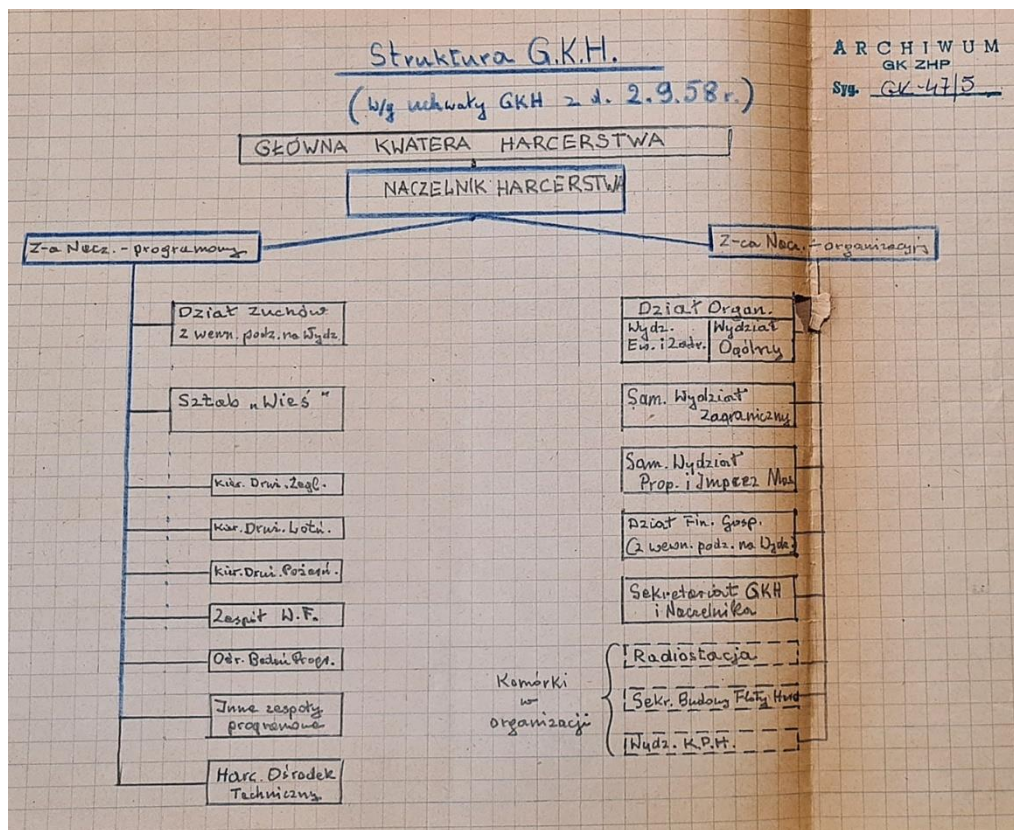 Struktura G.K.H.
(w/g uchwały GKH z d. 2.9.58 r.)
ARCHIWUM
GK ZHP
Syg. GK-47/5
GŁÓWNA KWATERA HARCERSTWA
NACZELNIK HARCERSTWA
Z-a Nacz. - programowy
Z-ca Nacz. - organizacyj
Dział Zuchów
z wewn. podz. na Wydz.
Sztab „Wieś"
Kier. Druż. Żegl.
Kier. Druż. Lotn.
Kier. Druż. Pożarn.
Zespół W.F.
Ośr. Badań Progr.
Inne zespoły
programowe
Harc. Ośrodek
Techniczny
Dział Organ.
Wydz.
Ew. i Zadr.
Wydział
Ogólny
Sam. Wydział
Zagraniczny
Sam. Wydział
Prop. i Imprez Mas
Dział Fin. Gosp.
(z wewn. podz. na Wydz.
Sekretariat GKH
i Naczelnika
Komórki
w
organizacji
Radiostacja
Sekr. Budowy Floty
Wydz. K.P.H.